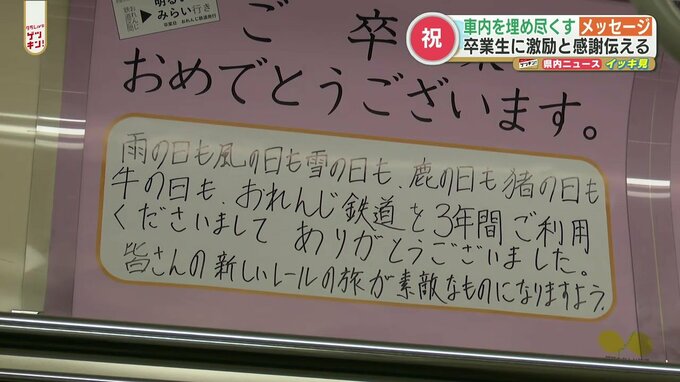 祝
車内を埋め尽くす メッセージ
卒業生に激励と感謝伝える
県内ニュース イッキ見
ゲツキン!
みらい行き
ご卒業
おめでとうございます。
雨の日も風の日も雪の日も、鹿の日も猪の日も
牛の日も、おれんじ鉄道を3年間ご利用
くださいまして ありがとうございました。
皆さんの新しいレールの旅が素敵なものになりますよう。